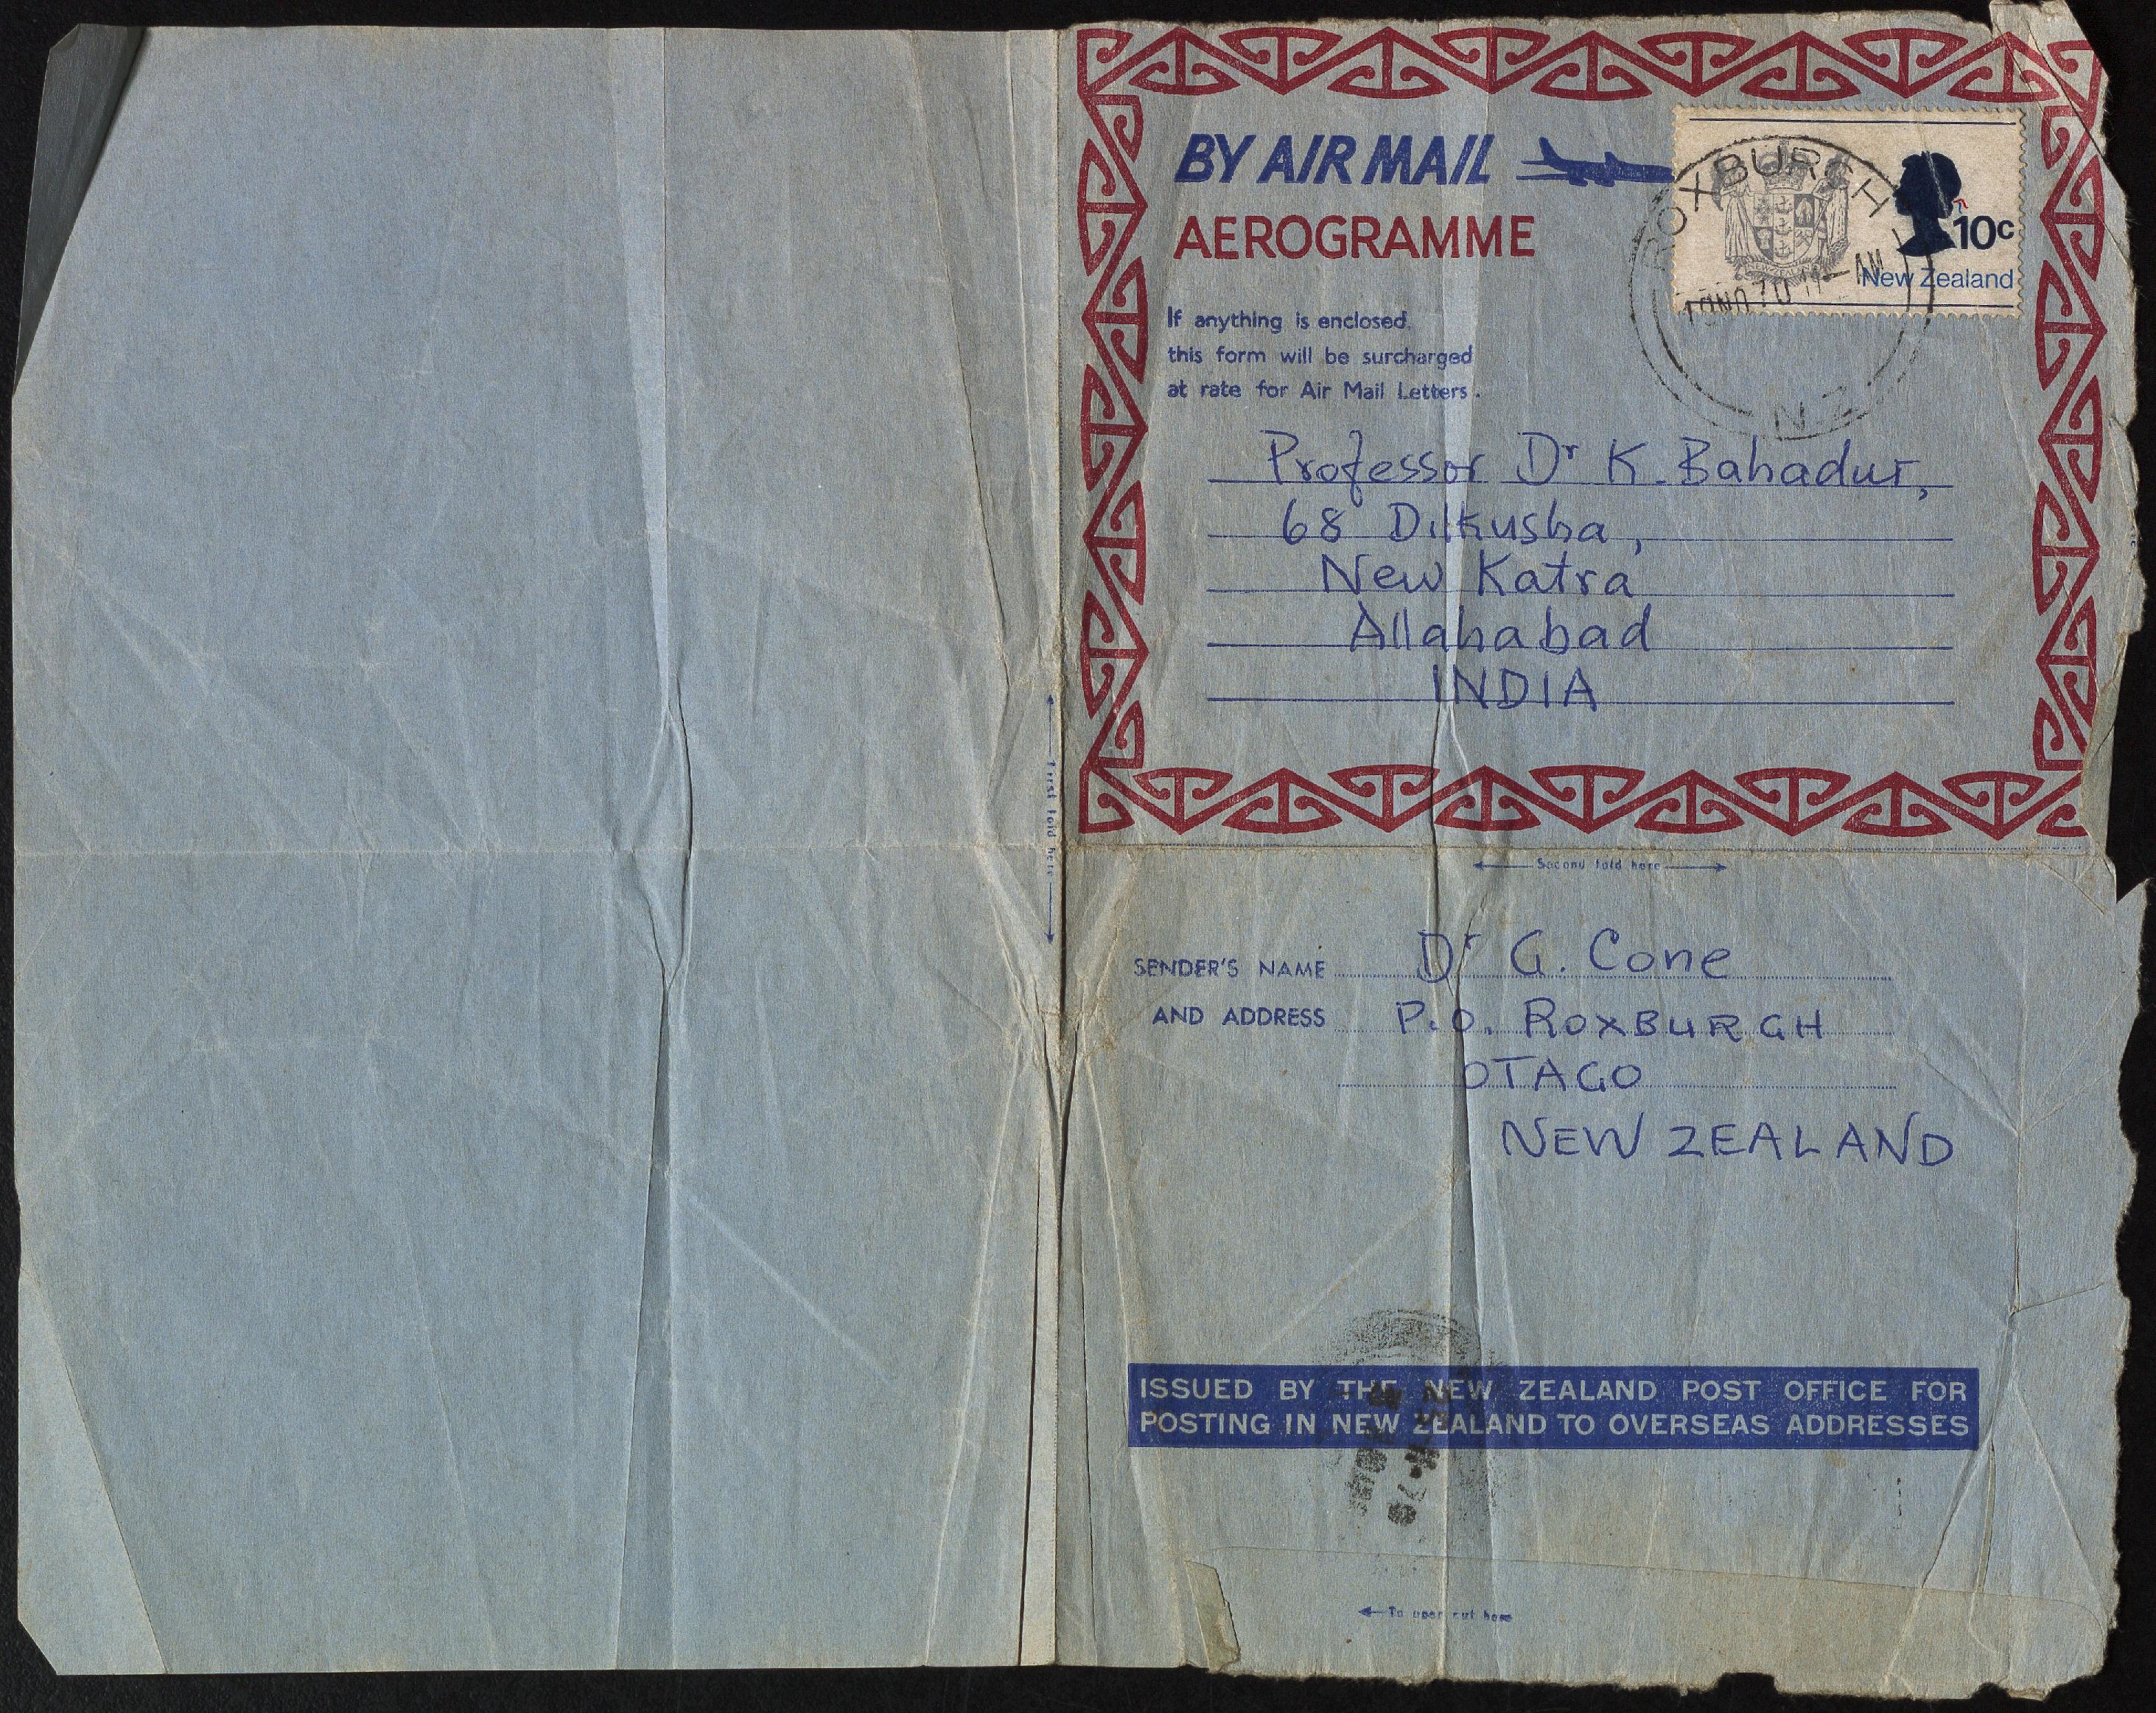 BY AIR MAIL
AEROGRAMME
If anything is enclosed
this form will be surcharged
at rate for Air Mail Letters.
ROXBURGH
NZ
10c
New Zealand
Professor Dr K. Bahadur,
68 Dilkusha,
New Katra
Allahabad
INDIA
First fold here
Second fold here
SENDER'S NAME Dr G. Cone
AND ADDRESS P.O. ROXBURGH
OTAGO
NEW ZEALAND
ISSUED BY THE NEW ZEALAND POST OFFICE FOR
POSTING IN NEW ZEALAND TO OVERSEAS ADDRESSES
To open cut here